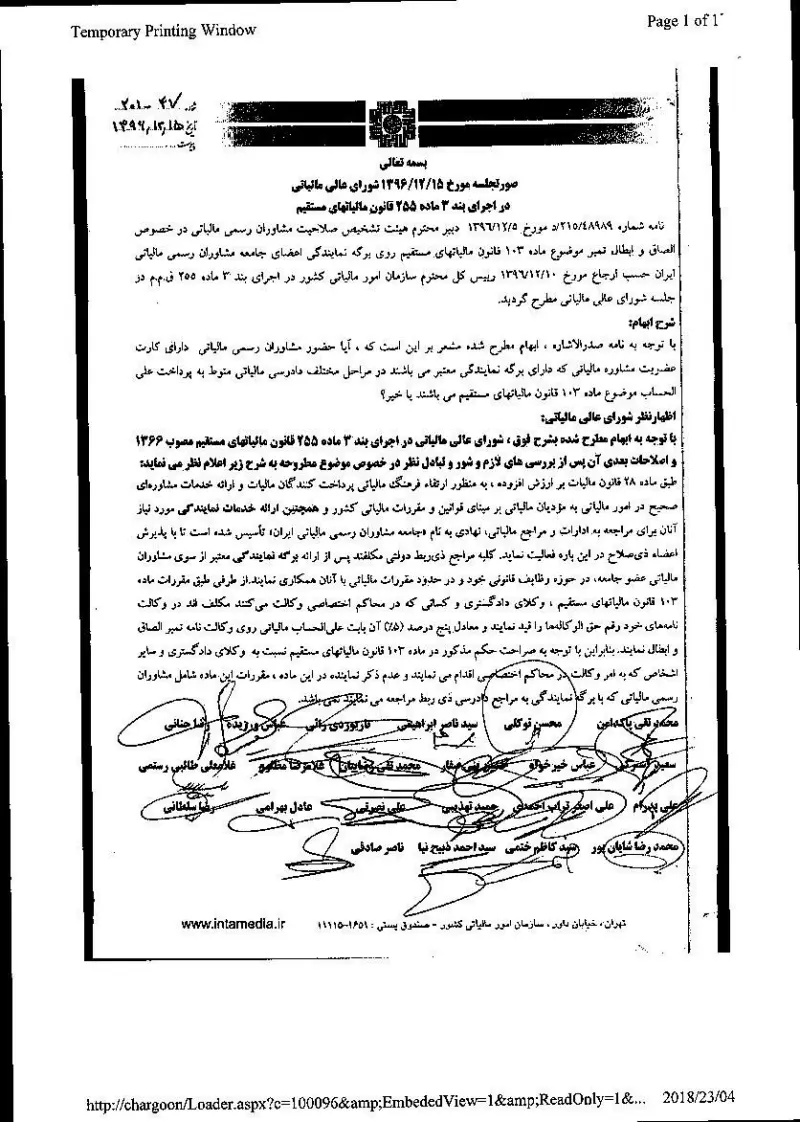 Temporary Printing Window
Page 1 of 1
۲۰۱-۴۷
۱۳۹۶,۱۲,۱۵
بسمه تعالی
صورتجلسه مورخ ۱۳۹۶/۱۲/۱۵ شورای عالی مالیاتی
در اجرای بند ۳ ماده ۲۵۵ قانون مالیاتهای مستقیم
نامه شماره ۲۱۵/۴۸۹۸۹/د مورخ ۱۳۹۶/۱۲/۵ دبیر محترم هیئت تشخیص صلاحیت مشاوران رسمی مالیاتی در خصوص
الصاق و ابطال تمبر موضوع ماده ۱۰۳ قانون مالیاتهای مستقیم روی برگه نمایندگی اعضای جامعه مشاوران رسمی مالیاتی
ایران حسب ارجاع مورخ ۱۳۹۶/۱۲/۱۰ رییس کل محترم سازمان امور مالیاتی کشور در اجرای بند ۳ ماده ۲۵۵ ق.م.م در
جلسه شورای عالی مالیاتی مطرح گردید.
شرح ابهام:
با توجه به نامه صدرالاشاره ، ابهام مطرح شده مشعر بر این است که ، آیا حضور مشاوران رسمی مالیاتی دارای کارت
عضویت مشاوره مالیاتی که دارای برگه نمایندگی معتبر می باشند در مراحل مختلف دادرسی مالیاتی منوط به پرداخت علی
الحساب موضوع ماده ۱۰۳ قانون مالیاتهای مستقیم می باشند یا خیر؟
اظهارنظر شورای عالی مالیاتی:
با توجه به ابهام مطرح شده بشرح فوق ، شورای عالی مالیاتی در اجرای بند ۳ ماده ۲۵۵ قانون مالیاتهای مستقیم مصوب ۱۳۶۶
و اصلاحات بعدی آن پس از بررسی های لازم و شور و تبادل نظر در خصوص موضوع مطروحه به شرح زیر اعلام نظر می نماید:
طبق ماده ۲۸ قانون مالیات بر ارزش افزوده ، به منظور ارتقاء فرهنگ مالیاتی پرداخت کنندگان مالیات و ارائه خدمات مشاوره‌ای
صحیح در امور مالیاتی به مؤدیان مالیاتی بر مبنای قوانین و مقررات مالیاتی کشور و همچنین ارائه خدمات نمایندگی مورد نیاز
آنان برای مراجعه به ادارات و مراجع مالیاتی، نهادی به نام «جامعه مشاوران رسمی مالیاتی ایران» تأسیس شده است تا با پذیرش
اعضاء ذی‌صلاح در این باره فعالیت نماید. کلیه مراجع ذی‌ربط دولتی مکلفند پس از ارائه برگه نمایندگی معتبر از سوی مشاوران
مالیاتی عضو جامعه، در حوزه وظایف قانونی خود و در حدود مقررات مالیاتی با آنان همکاری نمایند.از طرفی طبق مقررات ماده
۱۰۳ قانون مالیاتهای مستقیم ، وکلای دادگستری و کسانی که در محاکم اختصاصی وکالت می‌کنند مکلف اند در وکالت
نامه‌های خود رقم حق الوکاله‌ها را قید نمایند و معادل پنج درصد (۵٪) آن بابت علی‌الحساب مالیاتی روی وکالت نامه تمبر الصاق
و ابطال نمایند. بنابراین با توجه به صراحت حکم مذکور در ماده ۱۰۳ قانون مالیاتهای مستقیم نسبت به وکلای دادگستری و سایر
اشخاص که به امر وکالت در محاکم اختصاصی اقدام می نمایند و عدم ذکر نماینده در این ماده ، مقررات این ماده شامل مشاوران
رسمی مالیاتی که با برگه نمایندگی به مراجع دادرسی ذی ربط مراجعه می نمایند نمی باشد.
محمد تقی پاکدامن محسن توکلی سید ناصر ابراهیمی عباس ورزیده رضا جنانی
عباس خیرخواه محمد تقی رضاییان غلامرضا غلامعلی طالبی رستمی
علی پدرام علی اصغر تراب احمدی حمید تهذیبی علی نصرتی عادل بهرامی رضا سلطانی
محمد رضا شایان پور سید کاظم ختمی سید احمد ذبیح نیا ناصر صادقی
تهران، خیابان داور ، سازمان امور مالیاتی کشور - صندوق پستی : ۱۶۵۱-۱۱۱۱۵ www.intamedia.ir
http://chargoon/Loader.aspx?c=100096&amp;EmbededView=1&amp;ReadOnly=1&... 2018/23/04